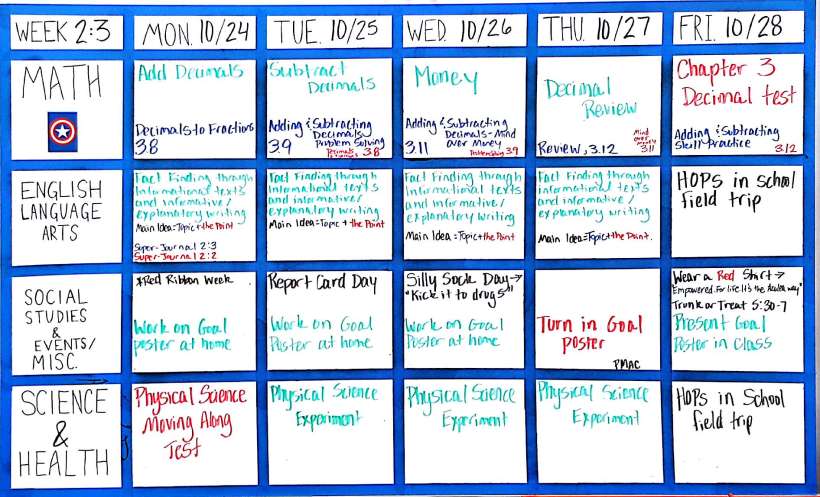 WEEK 2:3
MON. 10/24
TUE. 10/25
WED. 10/26
THU. 10/27
FRI. 10/28
MATH
Add Decimals
Decimals to Fractions
3.8
Subtract
Decimals
Adding & Subtracting
Decimals
Problem Solving
3.9
3.8
Money
Adding & Subtracting
Decimals - Mind
over Money
3.11
Problem Solving 3.9
Decimal
Review
Review, 3.12
Mind
over
Money
3.11
Chapter 3
Decimal test
Adding & Subtracting
Skill Practice
3.12
ENGLISH
LANGUAGE
ARTS
Fact Finding through
Informational texts
and informative/
explanatory writing
Main Idea = Topic + the Point
Super-Journal 2:3
Super-Journal 2:2
Fact Finding through
Informational texts
and informative/
explanatory writing
Main Idea = Topic + the Point
Fact Finding through
Informational texts
and informative/
explanatory writing
Main Idea = Topic + the Point
Fact Finding through
informational texts
and informative/
explanatory writing
Main Idea = Topic + the Point.
HOPs in School
field trip
SOCIAL
STUDIES
&
EVENTS/
MISC.
*Red Ribbon Week
Work on Goal
poster at home
Report Card Day
Work on Goal
Poster at home
Silly Sock Day →
"Kick it to drugs"
Work on Goal
Poster at home
Turn in Goal
poster
PMAC
Wear a Red Shirt →
Empowered. For life. It's the way"
Trunk or Treat 5:30-7
Present Goal
Poster in Class
SCIENCE
&
HEALTH
Physical Science
Moving Along
Test
Physical Science
Experiment
Physical Science
Experiment
Physical Science
Experiment
HOPs in School
field trip